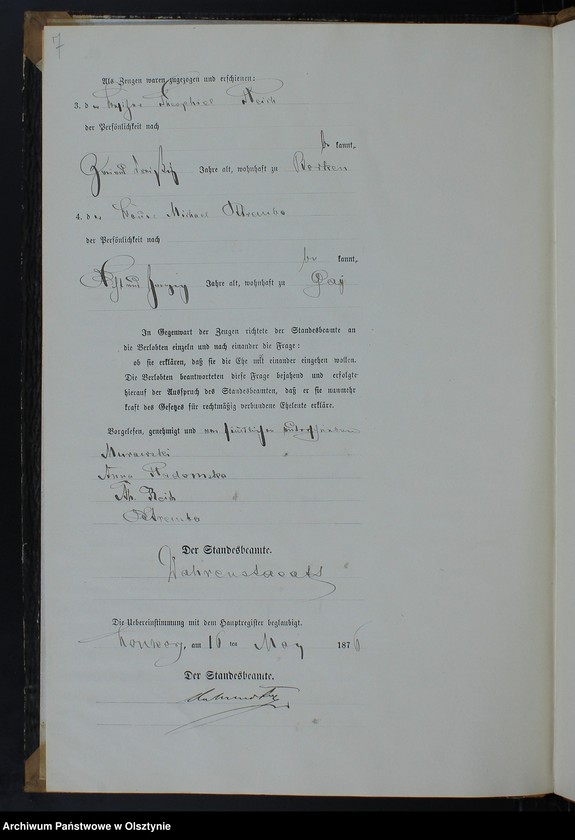 7
Als Zeugen waren zugezogen und erschienen:
3. der Theophiel Reich
der Persönlichkeit nach
be kannt,
und dreißig Jahre alt, wohnhaft zu Borken
4. der Michael Skrembo
der Persönlichkeit nach
be kannt,
und zwanzig Jahre alt, wohnhaft zu Gay
In Gegenwart der Zeugen richtete der Standesbeamte an
die Verlobten einzeln und nach einander die Frage:
ob sie erklären, daß sie die Ehe mit einander eingehen wollen.
Die Verlobten beantworteten diese Frage bejahend und erfolgte
hierauf der Ausspruch des Standesbeamten, daß er sie nunmehr
kraft des Gesetzes für rechtmäßig verbundene Eheleute erkläre.
Vorgelesen, genehmigt und von sämtlichen unterschrieben
Murawski
Anna Radomska
Th. Reich
Der Standesbeamte.
Die Uebereinstimmung mit dem Hauptregister beglaubigt.
am 16 ten May 1876
Der Standesbeamte.
Archiwum Państwowe w Olsztynie